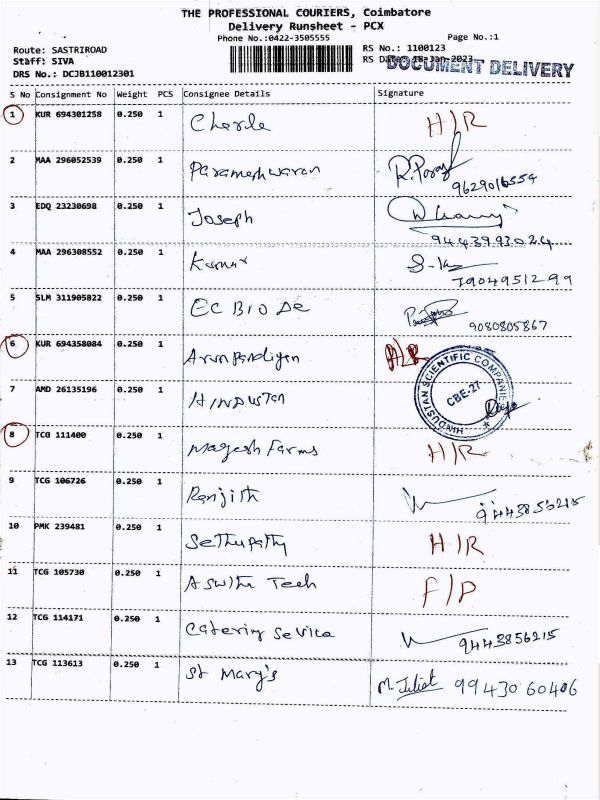 THE PROFESSIONAL COURIERS, Coimbatore
Delivery Runsheet - PCX
Phone No.:0422-3505555
Page No.:1
Route: SASTRIROAD
RS No.: 1100123
Staff: SIVA
RS Date: 18-Jan-2023
DOCUMENT DELIVERY
DRS No.: DCJB110012301
S No Consignment No Weight PCS Consignee Details Signature
1 KUR 694301258 0.250 1 Charle H/R
2 MAA 296052539 0.250 1 Parameshwaran 9629016554
3 EDQ 23230698 0.250 1 Joseph 9443993024
4 MAA 296308552 0.250 1 Kumar 7904951299
5 SLM 311905822 0.250 1 EC BIO DE 9080805867
6 KUR 694358084 0.250 1 Arun Pandiyan H/R
HINDUSTAN SCIENTIFIC COMPANY
CBE-27
7 AMD 26135196 0.250 1 HINDUSTAN
8 TCG 111400 0.250 1 Magesh Farms H/R
9 TCG 106726 0.250 1 Ranjith 9443856215
10 PMK 239481 0.250 1 Sethupathy H/R
11 TCG 105730 0.250 1 Aswithe Tech F/P
12 TCG 114171 0.250 1 Catering Service 9443856215
13 TCG 113613 0.250 1 St Mary's M. Juliet 99430 60406